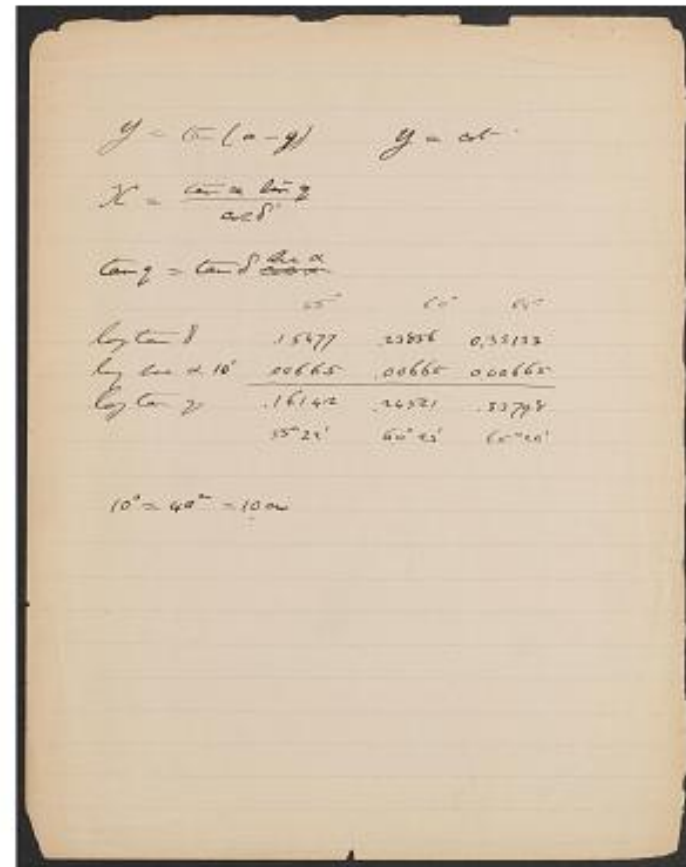 y = tan (a - q) y = cot
X = tan α sin q / cos δ
tan q = tan δ sec α
55° 60° 65°
log tan δ .15477 .23856 0.33133
log sec α 10° .00665 .00665 0.00665
log tan q .16142 .24521 .33798
55°22' 60°23'
10° = 40m =